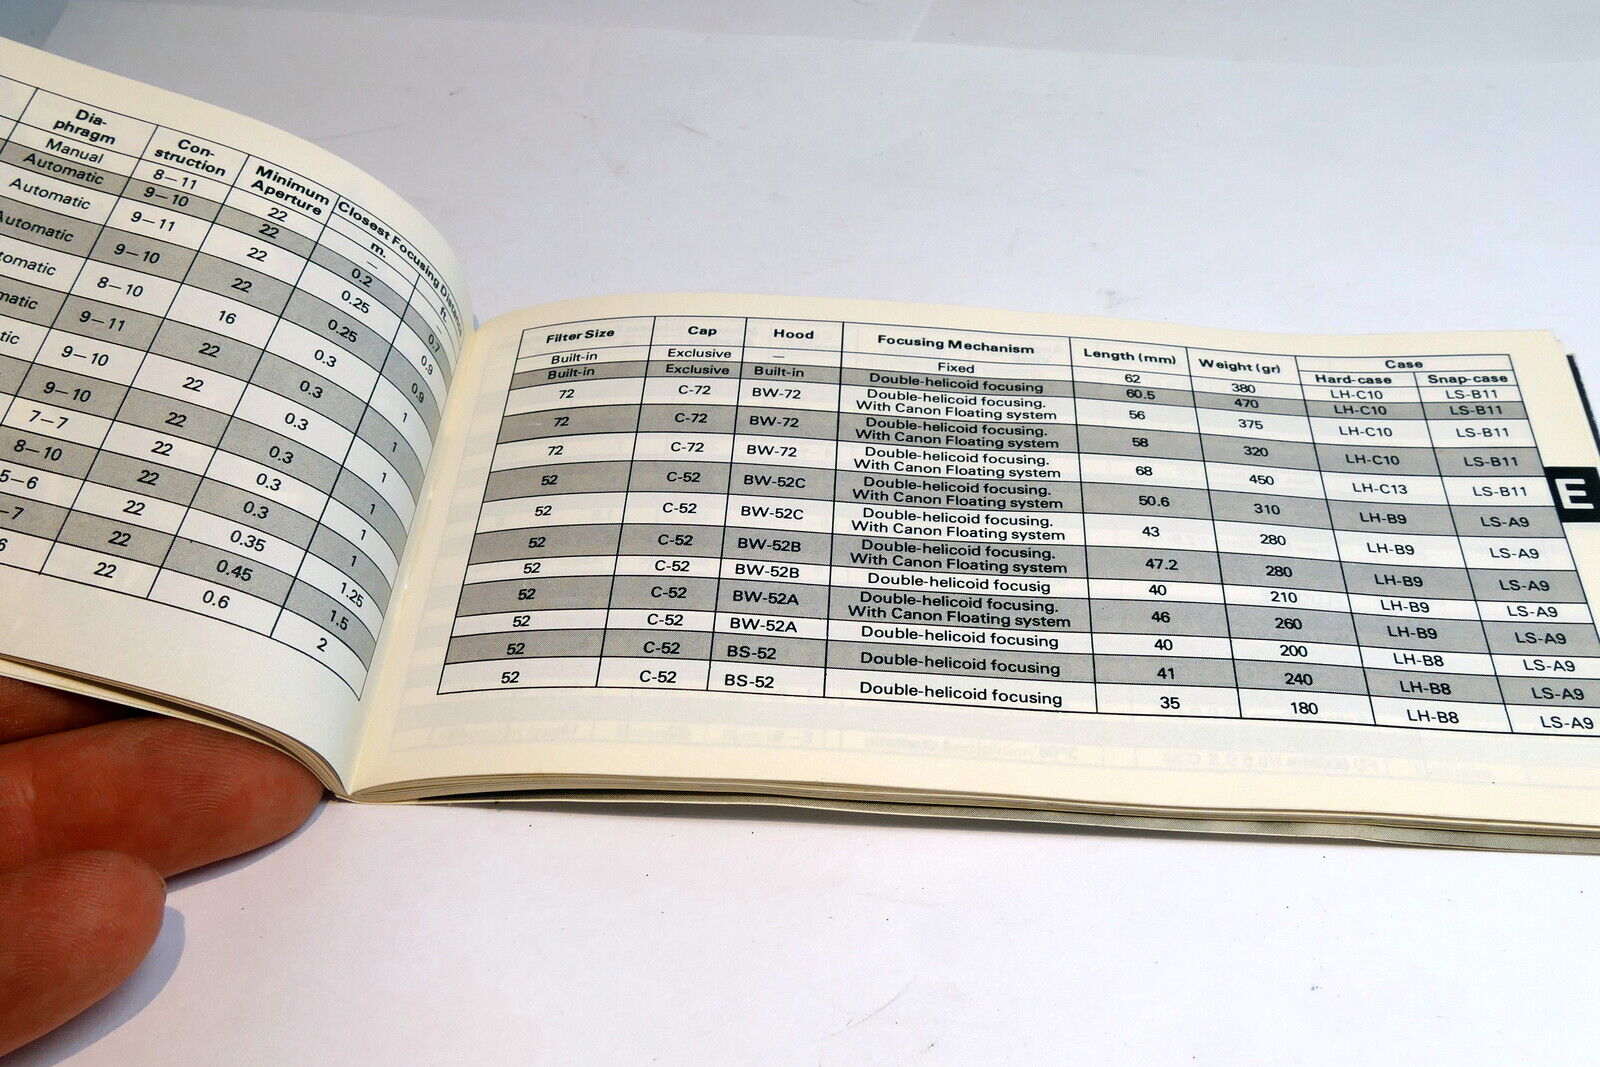 Dia- Con- Minimum Closest Focusing Distance
phragm struction Aperture m. ft.
Manual 8—11 22 — —
Automatic 9—10 22 0.2 0.7
Automatic 9—11 22 0.25 0.9
Automatic 9—10 22 0.25 0.9
8—10 16 0.3 1
9—11 22 0.3 1
9—10 22 0.3 1
9—10 22 0.3 1
7—7 22 0.3 1
8—10 22 0.3 1
5—6 22 0.35 1.25
22 0.45 1.5
22 0.6 2
Filter Size Cap Hood Focusing Mechanism Length (mm) Weight (gr) Case
Hard-case Snap-case
Built-in Exclusive — Fixed 62 380 LH-C10 LS-B11
Built-in Exclusive Built-in Double-helicoid focusing 60.5 470 LH-C10 LS-B11
72 C-72 BW-72 Double-helicoid focusing. 56 375 LH-C10 LS-B11
With Canon Floating system
72 C-72 BW-72 Double-helicoid focusing. 58 320 LH-C10 LS-B11
With Canon Floating system
72 C-72 BW-72 Double-helicoid focusing. 68 450 LH-C13 LS-B11
With Canon Floating system
52 C-52 BW-52C Double-helicoid focusing. 50.6 310 LH-B9 LS-A9
With Canon Floating system
52 C-52 BW-52C Double-helicoid focusing. 43 280 LH-B9 LS-A9
With Canon Floating system
52 C-52 BW-52B Double-helicoid focusing. 47.2 280 LH-B9 LS-A9
With Canon Floating system
52 C-52 BW-52B Double-helicoid focusig 40 210 LH-B9 LS-A9
52 C-52 BW-52A Double-helicoid focusing. 46 260 LH-B9 LS-A9
With Canon Floating system
52 C-52 BW-52A Double-helicoid focusing 40 200 LH-B8 LS-A9
52 C-52 BS-52 Double-helicoid focusing 41 240 LH-B8 LS-A9
52 C-52 BS-52 Double-helicoid focusing 35 180 LH-B8 LS-A9
E